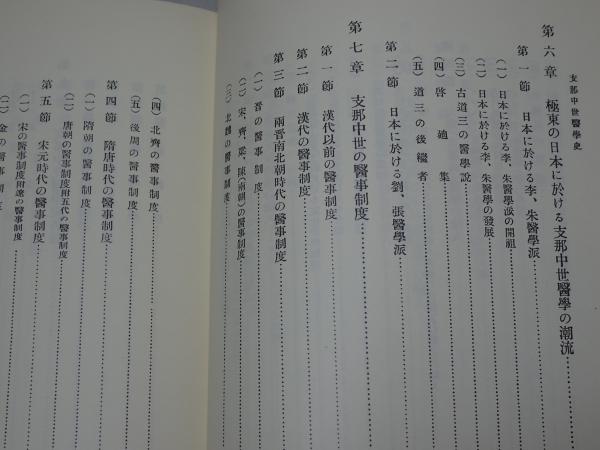 支那中世醫學史
第六章 極東の日本に於ける支那中世醫學の潮流
第一節 日本に於ける李、朱醫學派
(一) 日本に於ける李、朱醫學派の開祖
(二) 日本に於ける李、朱醫學の發展
(三) 古道三の醫學説
(四) 啓廸集
(五) 道三の後繼者
第二節 日本に於ける劉、張醫學派
第七章 支那中世の醫事制度
第一節 漢代以前の醫事制度
第二節 漢代の醫事制度
第三節 兩晋南北朝時代の醫事制度
(一) 晋の醫事制度
(二) 宋、齊、梁、陳(南朝)の醫事制度
(三) 北魏の醫事制度
(四) 北齊の醫事制度
(五) 後周の醫事制度
第四節 隋唐時代の醫事制度
(一) 隋朝の醫事制度
(二) 唐朝の醫事制度附五代の醫事制度
第五節 宋元時代の醫事制度
(一) 宋の醫事制度附遼の醫事制度
(二) 金の醫事制度